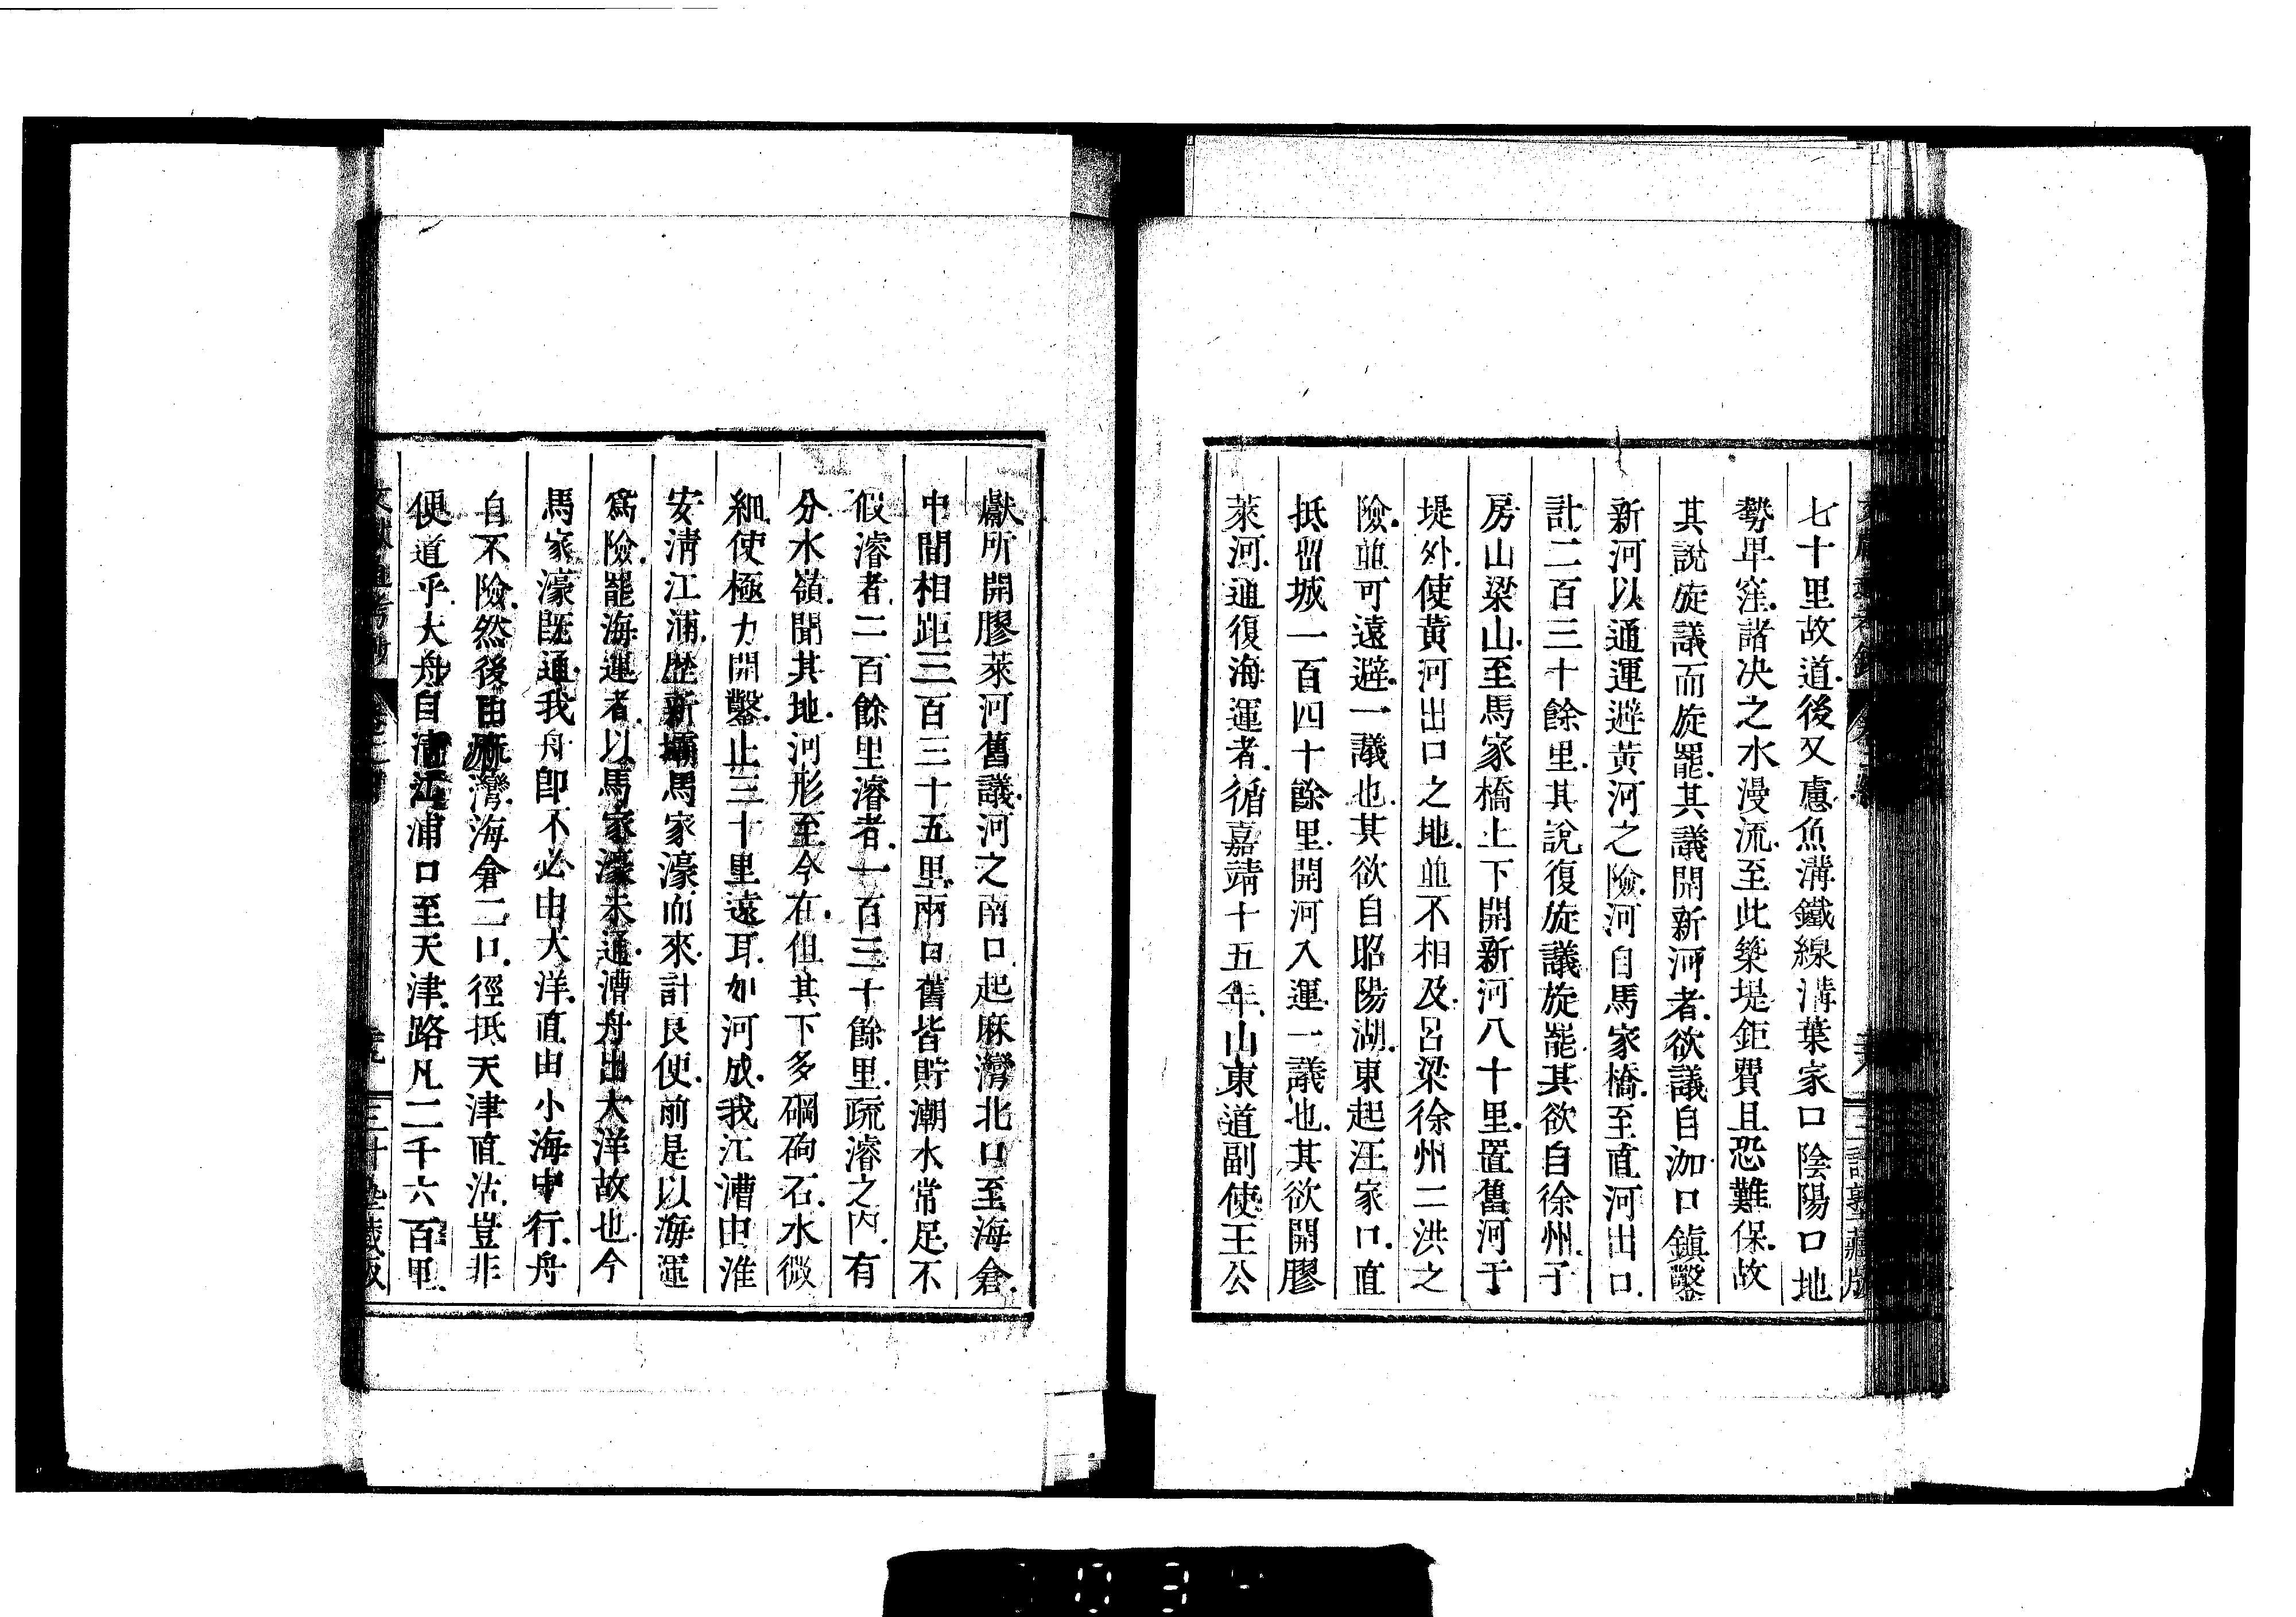 七十里故道後又慮魚溝鐵線溝葉家口陰陽口地
勢卑窪諸决之水漫流至此築堤鉅費且恐難保故
其說旋議而旋罷其議開新河者欲議自泇口鎮鑿
新河以通運避黃河之險河自馬家橋至直河出口
計二百三十餘里其說復旋議旋罷其欲自徐州子
房山梁山至馬家橋上下開新河八十里置舊河于
堤外使黃河出口之地並不相及呂梁徐州二洪之
險並可遠避一議也其欲自昭陽湖東起汪家口直
抵留城一百四十餘里開河入運一議也其欲開膠
萊河通復海運者循嘉靖十五年山東道副使王公
獻所開膠萊河舊議河之南口起麻灣北口至海倉
中間相距三百三十五里兩口舊皆貯潮水常足不
假濬者二百餘里濬者一百三十餘里疏濬之內有
分水嶺聞其地河形至今在但其下多碙砲石水微
細使極力開鑿止三十里遠耳如河成我江漕由淮
安清江浦歷新壩馬家濠而來計良便前是以海運
爲險罷海運者以馬家濠未通漕舟出大洋故也今
馬家濠既通我舟卽不必由大洋直由小海中行舟
自不險然後由麻灣海倉二口徑抵天津直沽豈非
便道乎大舟自清江浦口至天津路凡二千六百里